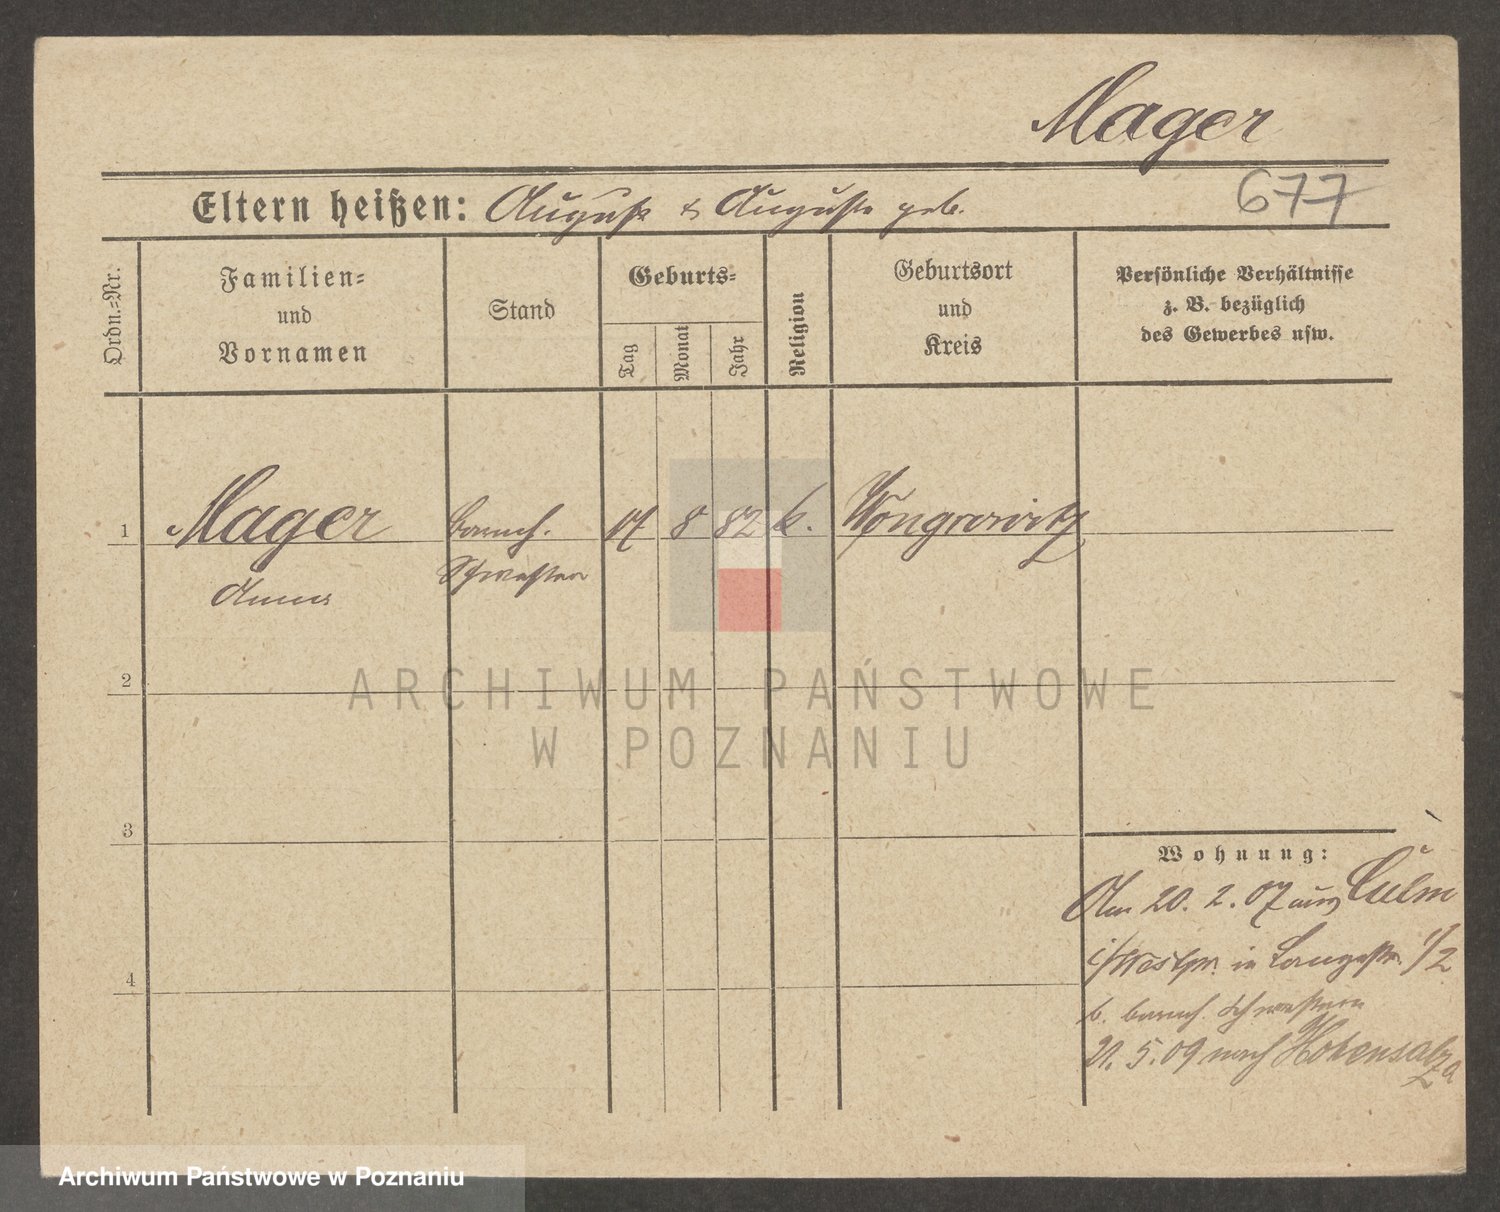 Mager
Eltern heißen: August & Auguste geb.
677
Ordn.-Nr.
Familien-
und
Vornamen
Stand
Geburts-
Tag
Monat
Jahr
Religion
Geburtsort
und
Kreis
Persönliche Verhältnisse
z. B. bezüglich
des Gewerbes usw.
1 Mager barmh. 17 8 82 k. Wongrowitz
Anna Schwester
2
3
4
Wohnung:
Am 20. 2. 07 aus Culm
i/Westpr. in Langestr. 1/2
b. barmh. Schwestern
21. 5. 09 nach Hohensalza
ARCHIWUM PAŃSTWOWE
W POZNANIU
Archiwum Państwowe w Poznaniu